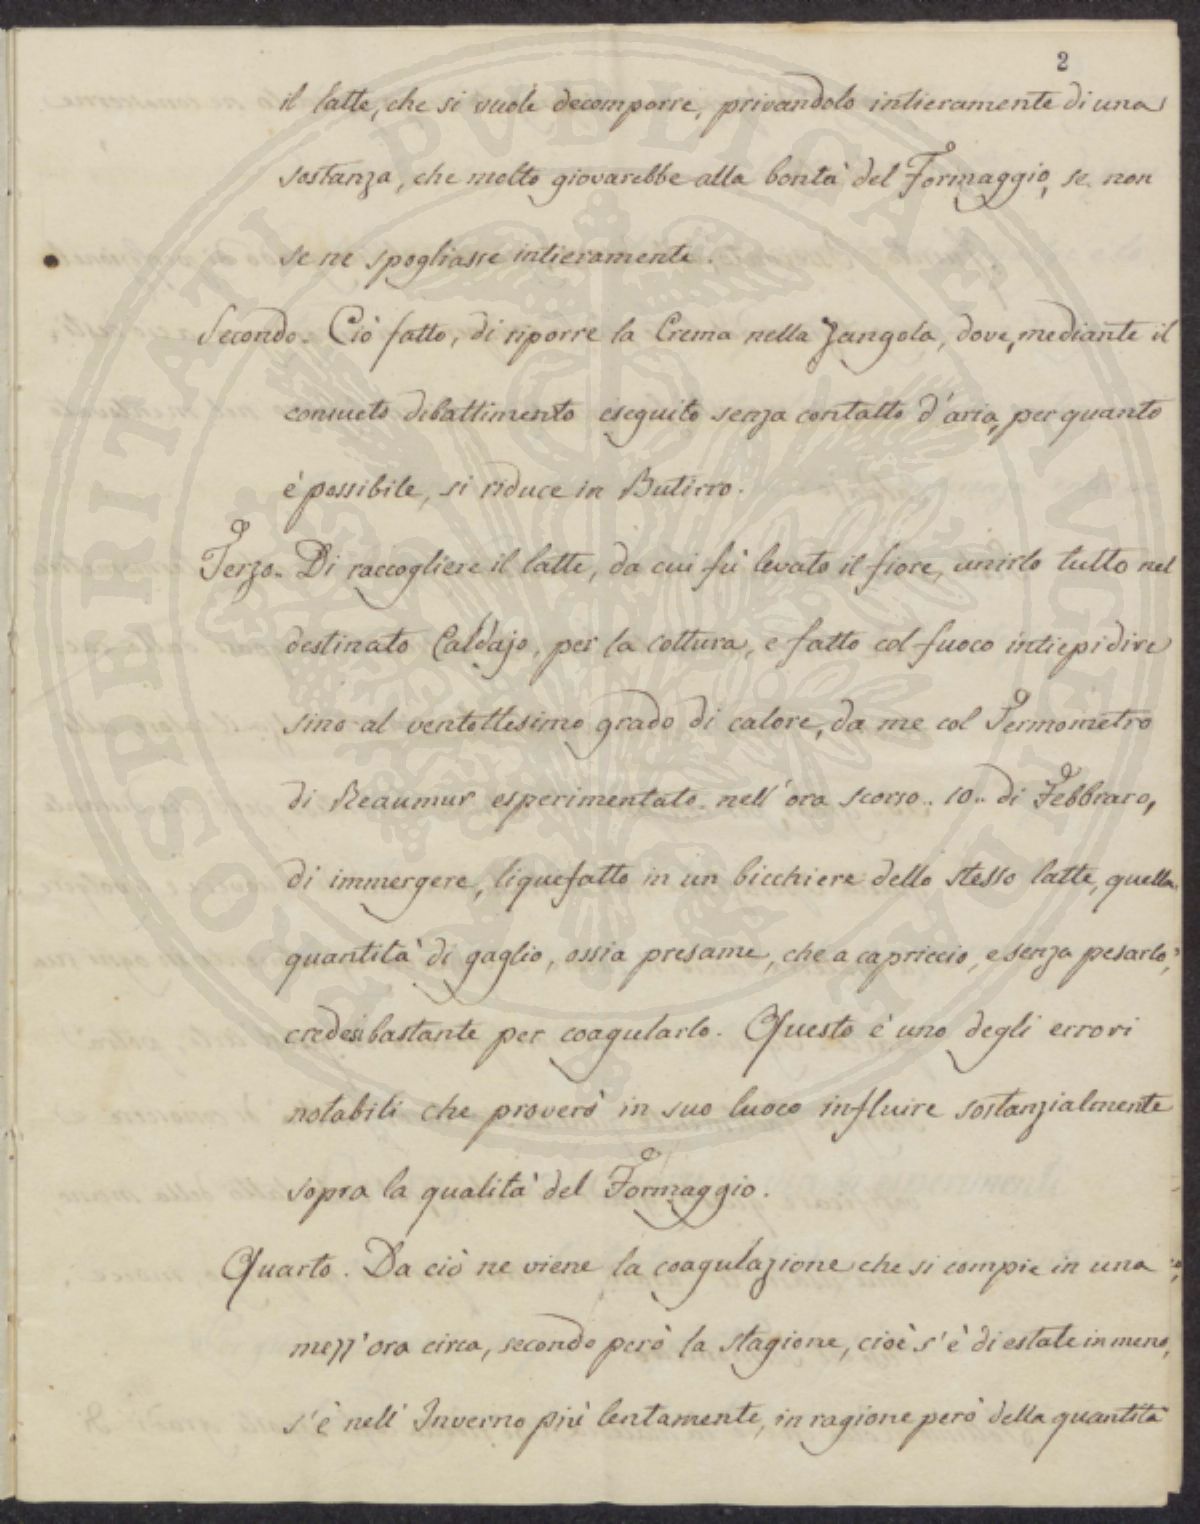 2
il latte, che si vuole decomporre, privandolo intieramente di una
sostanza, che molto giovarebbe alla bontà del Formaggio, se non
se ne spogliasse intieramente.
Secondo. Ciò fatto, di riporre la Crema nella Zangola, dove, mediante il
consueto dibattimento eseguito senza contatto d'aria, per quanto
è possibile, si riduce in Butirro.
Terzo. Di raccogliere il latte, da cui fù levato il fiore, unirlo tutto nel
destinato Caldajo, per la cottura, e fatto col fuoco intiepidire
sino al ventottesimo grado di calore, da me col Termometro
di Reaumur esperimentato nell'ora scorso .. 10 .. di Febbraro,
di immergere, liquefatto in un bicchiere dello stesso latte, quella
quantità di gaglio, ossia presame, che a capriccio, e senza pesarlo,
credesi bastante per coagularlo. Questo è uno degli errori
notabili che proverò in suo luoco influire sostanzialmente
sopra la qualità del Formaggio.
Quarto. Da ciò ne viene la coagulazione che si compie in una
mezz'ora circa, secondo però la stagione, cioè s'è di estate in meno,
s'è nell'Inverno più lentamente, in ragione però della quantità
PROSPERITATI PUBLICAE AUGENDAE